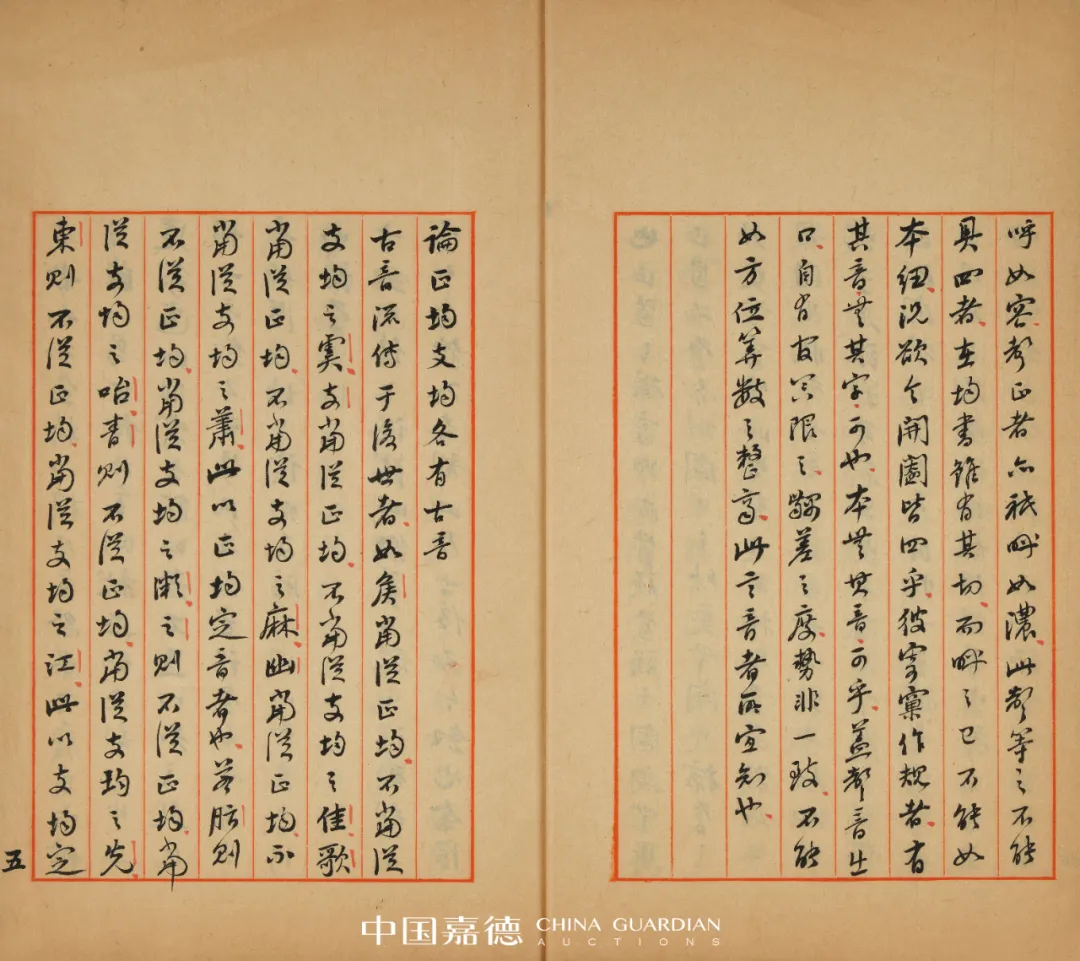 呼如容声正者亦祇呼如濃此声等之不能
具四者在均書雖有其切而呼之已不能如
本紐況欲令開闔皆四乎彼穿窠作規者有
其音無其字可也本無其音可乎蓋声音出
口自有官骸限之齟差之度勢非一致不能
如方位算数之整齊此言音者所宜知也
論正均支均各有古音
古音流傳于後世者如矦當從正均不當從
支均之虞支當從正均不當從支均之佳歌
當從正均不當從支均之麻幽當從正均不
當從支均之蕭此以正均定音者也若肪則
不從正均當從支均之之則不從正均當
從支均之咍青則不從正均當從支均之先
東則不從正均當從支均之江此以支均定
五
中国嘉德 CHINA GUARDIAN
AUCTIONS